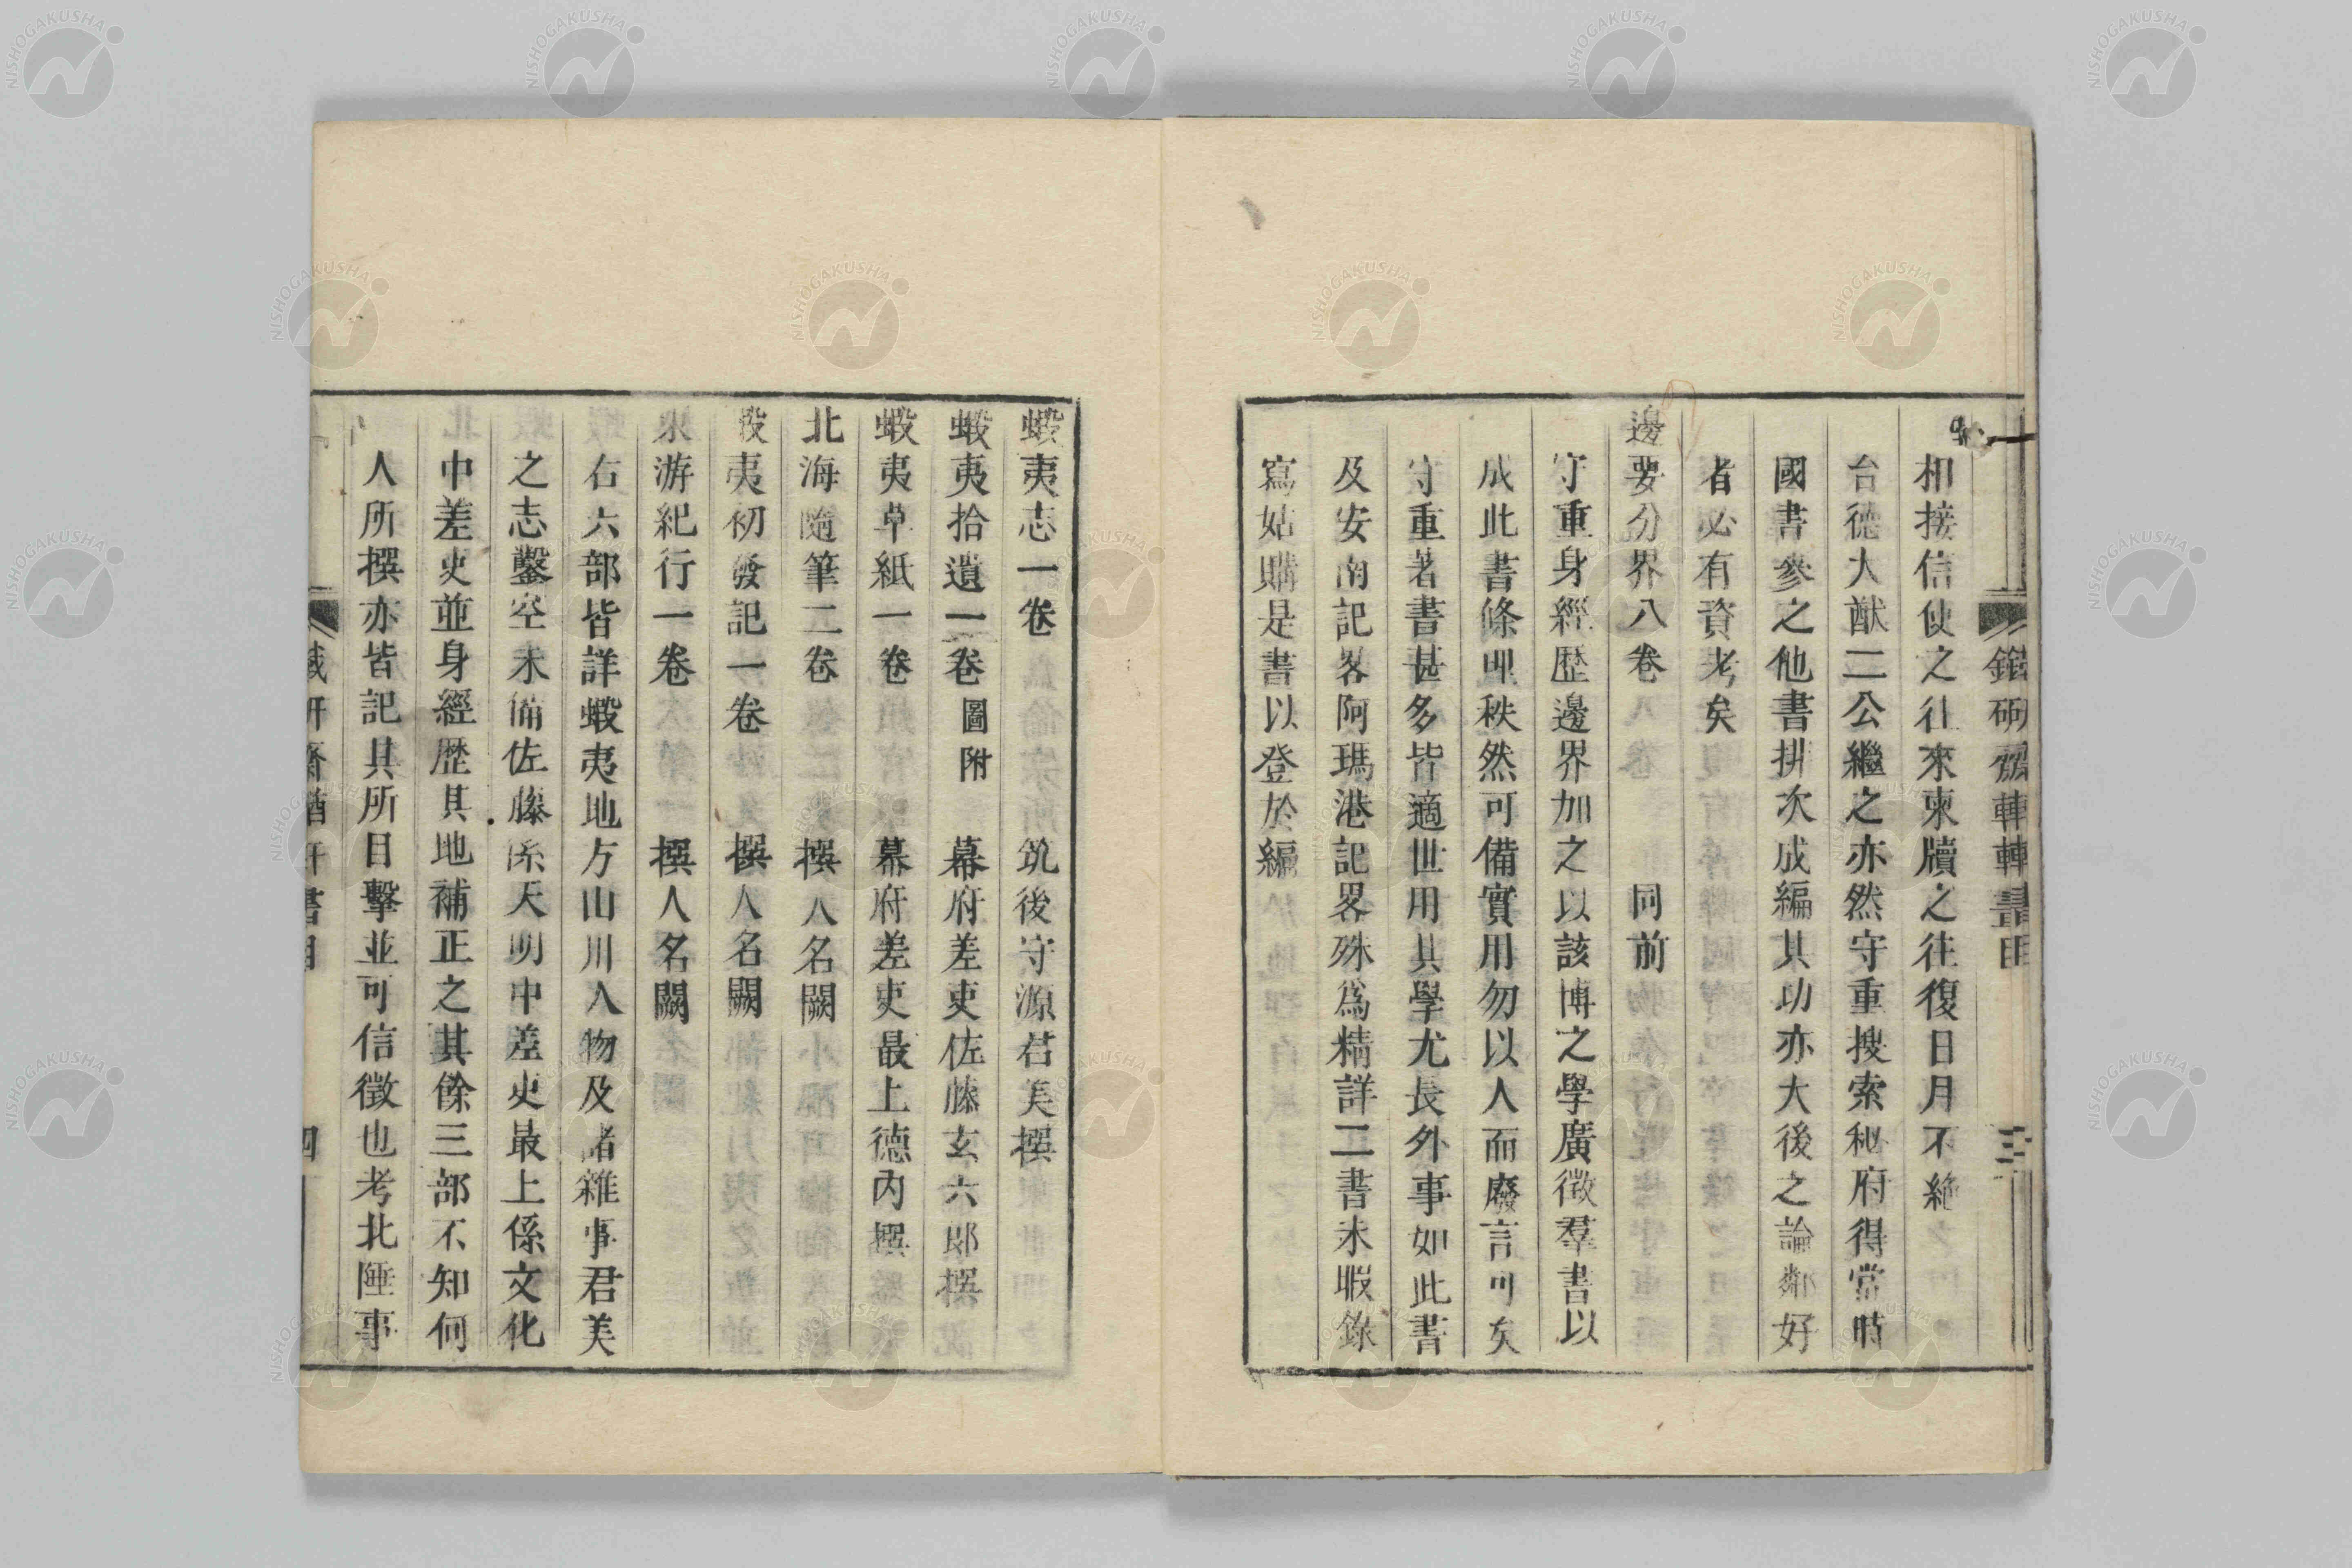 相接信使之往來柬牘之往復日月不絶
台德大猷二公繼之亦然守重搜索秘府得當時
國書參之他書排次成編其功亦大後之論鄰好
者必有資考矣
邊要分界八卷 同前
守重身經歷邊界加之以該博之學廣徵羣書以
成此書條理秩然可備實用勿以人而廢言可矣
守重著書甚多皆適世用其學尤長外事如此書
及安南記畧阿瑪港記畧殊爲精詳二書未暇錄
寫姑購是書以登於編
蝦夷志一卷 筑後守源君美撰
蝦夷拾遺一卷圖附 幕府差吏佐藤玄六郎撰
蝦夷草紙一卷 幕府差吏最上德內撰
北海隨筆二卷 撰人名闕
蝦夷初發記一卷 撰人名闕
東游紀行一卷 撰人名闕
右六部皆詳蝦夷地方山川人物及諸雜事君美
之志鑿空未備佐藤係天明中差吏最上係文化
中差吏並身經歷其地補正之其餘三部不知何
人所撰亦皆記其所目擊並可信徵也考北陲事
四
NISHOGAKUSHA